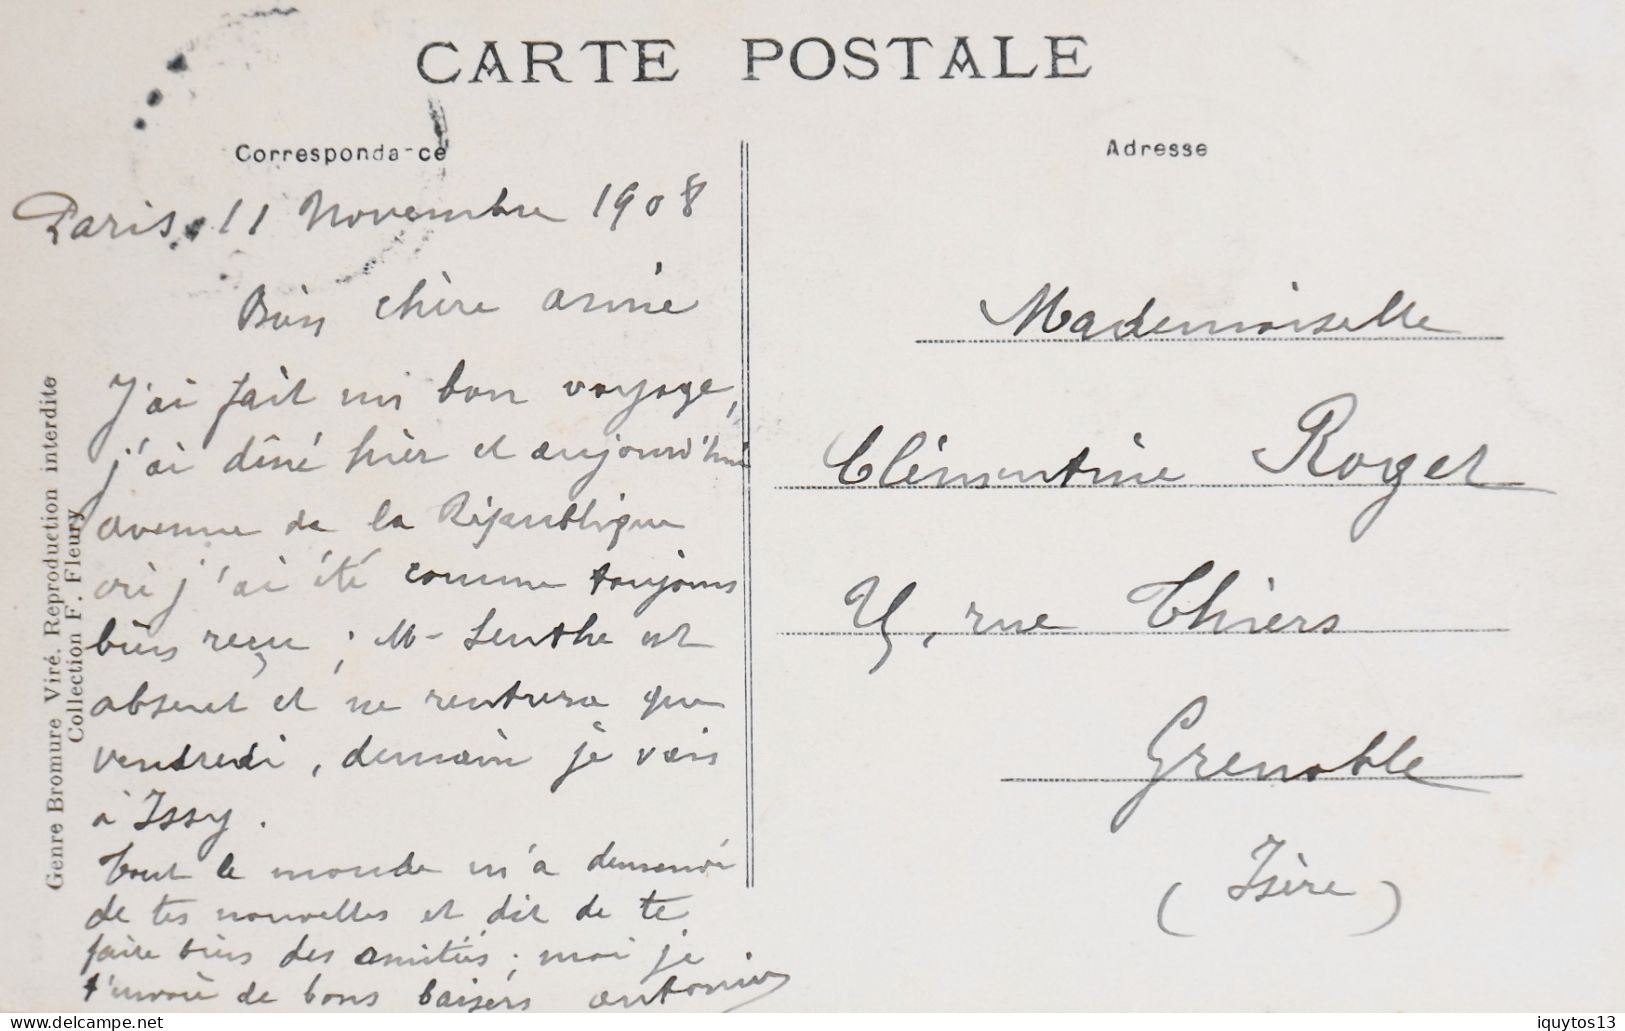 CARTE POSTALE
Correspondance
Adresse
Paris, 11 Novembre 1908
Bien chère amie
J'ai fait un bon voyage,
j'ai dîné hier et aujourd'hui
avenue de la République
où j'ai été comme toujours
bien reçu ; M- Lenthe est
absent et ne rentrera que
vendredi, demain je vais
à Issy.
Tout le monde m'a demandé
de tes nouvelles et dit de te
faire bien des amitiés ; moi je
t'envoie de bons baisers Antonin
Mademoiselle
Clémentine Roget
rue Thiers
Grenoble
(Isère)
Genre Bromure Viré. Reproduction interdite
Collection F. Fleury
delcampe.net
iquytos13